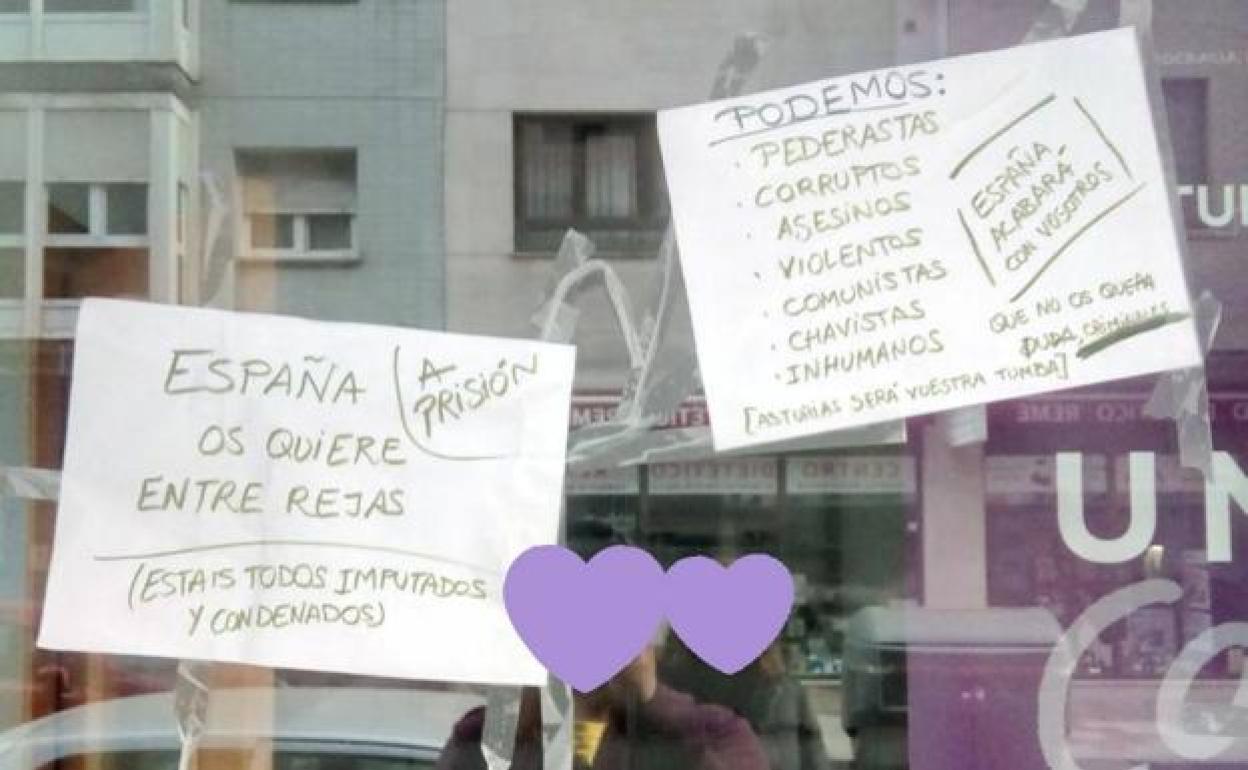 PODEMOS:
· PEDERASTAS
· CORRUPTOS
· ASESINOS
· VIOLENTOS
· COMUNISTAS
· CHAVISTAS
· INHUMANOS
ESPAÑA
ACABARÁ
CON VOSOTROS
QUE NO OS QUEPA
DUDA, CRIMINALES
[ASTURIAS SERÁ VUESTRA TUMBA]
ESPAÑA
OS QUIERE
ENTRE REJAS
A
PRISIÓN
(ESTAIS TODOS IMPUTADOS
Y CONDENADOS)
TU
UN
CENTRO DIETETICO